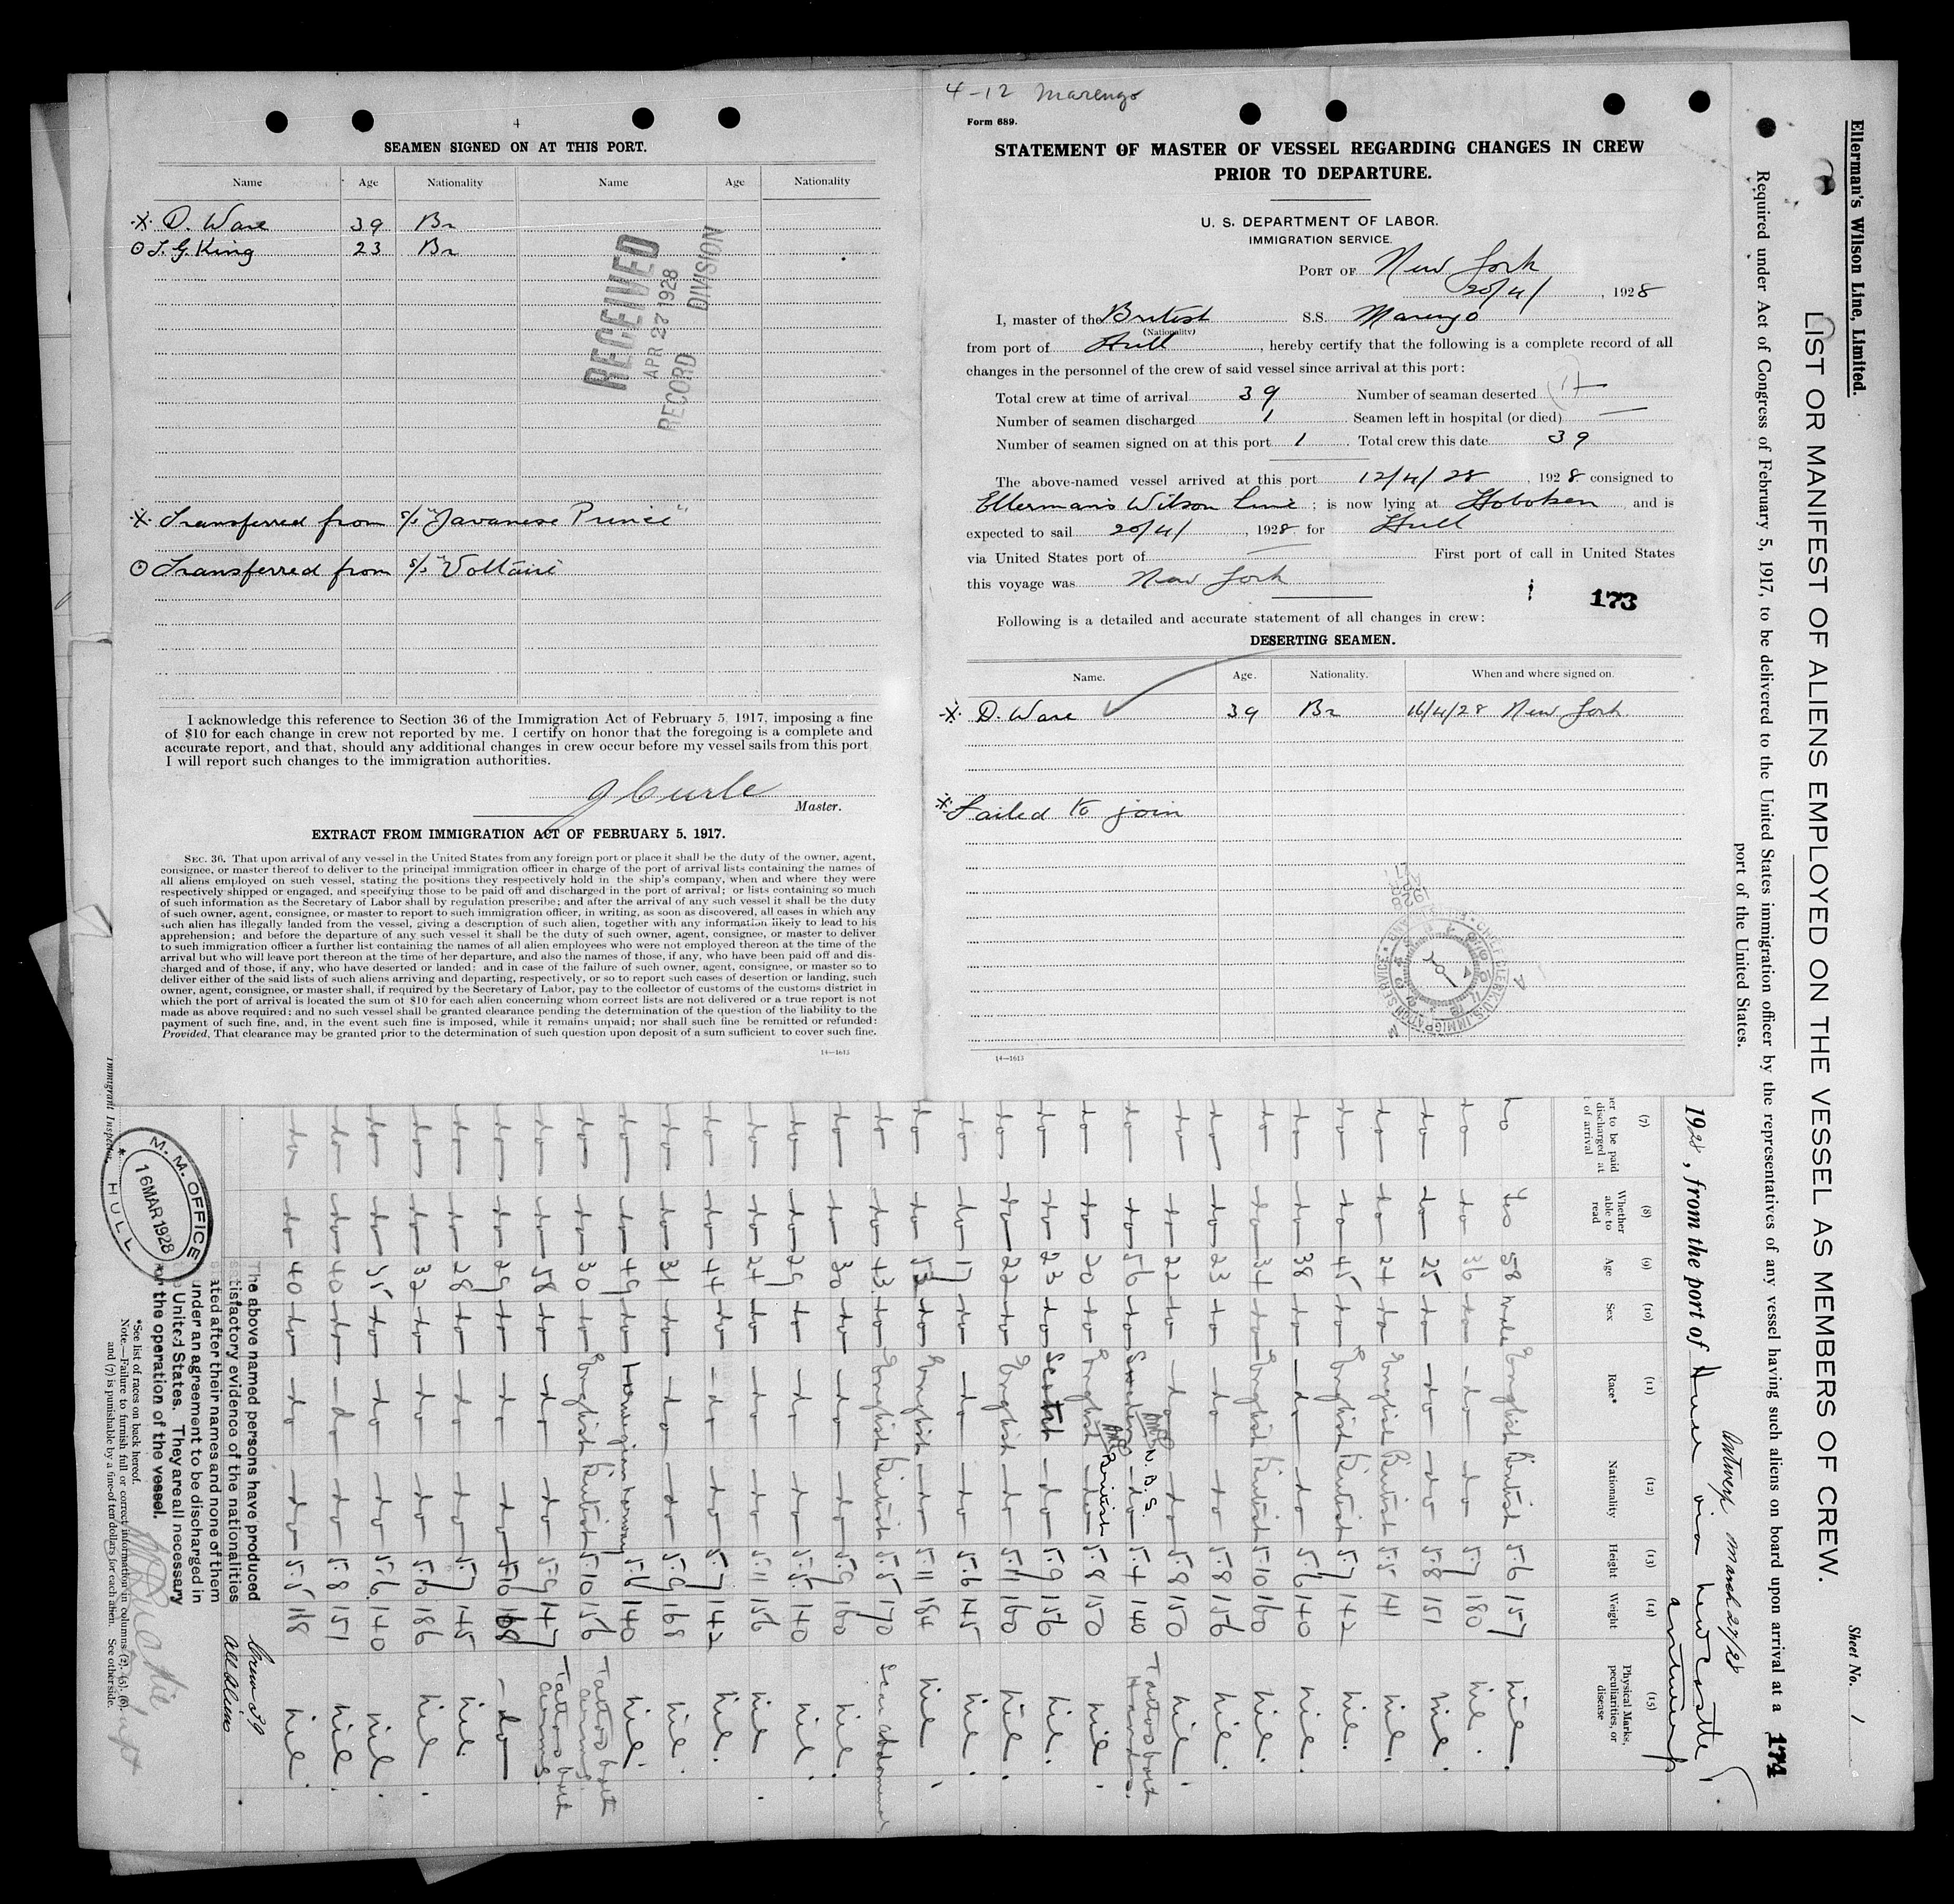 4
SEAMEN SIGNED ON AT THIS PORT.
Name Age Nationality Name Age Nationality
D. Ware 39 Br
J. G. King 23 Br
RECEIVED
APR 27 1928
RECORD DIVISION
Transferred from s/s "Javanese Prince"
Transferred from s/s "Voltaire
I acknowledge this reference to Section 36 of the Immigration Act of February 5, 1917, imposing a fine
of $10 for each change in crew not reported by me. I certify on honor that the foregoing is a complete and
accurate report, and that, should any additional changes in crew occur before my vessel sails from this port
I will report such changes to the immigration authorities.
J Curle
Master.
EXTRACT FROM IMMIGRATION ACT OF FEBRUARY 5, 1917.
SEC. 36. That upon arrival of any vessel in the United States from any foreign port or place it shall be the duty of the owner, agent,
consignee, or master thereof to deliver to the principal immigration officer in charge of the port of arrival lists containing the names of
all aliens employed on such vessel, stating the positions they respectively hold in the ship's company, when and where they were
respectively shipped or engaged, and specifying those to be paid off and discharged in the port of arrival; or lists containing so much
of such information as the Secretary of Labor shall by regulation prescribe; and after the arrival of any such vessel it shall be the duty
of such owner, agent, consignee, or master to report to such immigration officer, in writing, as soon as discovered, all cases in which any
such alien has illegally landed from the vessel, giving a description of such alien, together with any information likely to lead to his
apprehension; and before the departure of any such vessel it shall be the duty of such owner, agent, consignee, or master to deliver
to such immigration officer a further list containing the names of all alien employees who were not employed thereon at the time of the
arrival but who will leave port thereon at the time of her departure, and also the names of those, if any, who have been paid off and dis-
charged and of those, if any, who have deserted or landed; and in case of the failure of such owner, agent, consignee, or master so to
deliver either of the said lists of such aliens arriving and departing, respectively, or so to report such cases of desertion or landing, such
owner, agent, consignee, or master shall, if required by the Secretary of Labor, pay to the collector of customs of the customs district in
which the port of arrival is located the sum of $10 for each alien concerning whom correct lists are not delivered or a true report is not
made as above required; and no such vessel shall be granted clearance pending the determination of the question of the liability to the
payment of such fine, and, in the event such fine is imposed, while it remains unpaid; nor shall such fine be remitted or refunded:
Provided, That clearance may be granted prior to the determination of such question upon deposit of a sum sufficient to cover such fine.
14—1613
4-12 Marengo
Form 689.
STATEMENT OF MASTER OF VESSEL REGARDING CHANGES IN CREW
PRIOR TO DEPARTURE.
U. S. DEPARTMENT OF LABOR.
IMMIGRATION SERVICE.
PORT OF New York
20/4/, 1928
I, master of the British S.S. Marengo
(Nationality)
from port of Hull, hereby certify that the following is a complete record of all
changes in the personnel of the crew of said vessel since arrival at this port:
Total crew at time of arrival 39 Number of seaman deserted 1
Number of seamen discharged 1 Seamen left in hospital (or died) —
Number of seamen signed on at this port 1 Total crew this date 39
The above-named vessel arrived at this port 12/4/28, 1928 consigned to
Ellerman's Wilson Line; is now lying at Hoboken and is
expected to sail 20/4/, 1928 for Hull
via United States port of — First port of call in United States
this voyage was New York
173
Following is a detailed and accurate statement of all changes in crew:
DESERTING SEAMEN.
Name. Age. Nationality. When and where signed on.
D. Ware 39 Br 16/4/28 New York
Failed to join
14—1613
Ellerman's Wilson Line, Limited.
Sheet No. 1
LIST OR MANIFEST OF ALIENS EMPLOYED ON THE VESSEL AS MEMBERS OF CREW.
Required under Act of Congress of February 5, 1917, to be delivered to the United States immigration officer by the representatives of any vessel having such aliens on board upon arrival at a
port of the United States.
174
Antwerp March 27/28
1928, from the port of Hull via Newcastle
Antwerp
(7) (8) (9) (10) (11) (12) (13) (14) (15)
Whether able to read Age Sex Race* Nationality Height Weight Physical Marks, peculiarities, or disease
no Yes 58 Male English British 5.6 157 Nil
do do 36 do do do 5.7 180 Nil.
do do 25 do do do 5.8 151 Nil
do do 24 do English British 5.5 141 Nil.
do do 45 do English British 5.7 142 Nil.
do do 38 do do do 5.6 140 Nil.
do do 34 do English British 5.10 160 Nil.
do do 23 do do do 5.8 156 Nil.
do do 22 do do do 5.8 150 Nil.
do do 56 do Sweden U.S. do 5.4 140 Tattoo both Hands.
do do 30 do English British do 5.8 150 Nil.
do do 23 do Scotch do 5.9 156 Nil.
do do 22 do English do 5.11 160 Nil.
do do 17 do do do 5.6 145 Nil.
do do 53 do English do 5.11 184 Nil
do do 43 do English British 5.5 170 Scar Abdomen
do do 30 do do do 5.9 160 Nil.
do do 29 do do do 5.5 140 Nil.
do do 24 do do do 5.11 156 Nil.
do do 44 do do do 5.7 142 Nil.
do do 31 do do do 5.9 168 Nil.
do do 49 do Norwegian Norway 5.6 140 Nil.
do do 30 do English British 5.10 156 Tattoo both arms.
do do 58 do do do 5.9 147 Tattoo both arms.
do do 29 do do do 5.10 168 do
do do 28 do do do 5.7 145 Nil.
do do 32 do do do 5.10 186 Nil.
do do 35 do do do 5.6 140 Nil.
do do 40 do do do 5.8 151 Nil.
do do 40 do do do 5.5 168 Nil.
Crew 39
All Aliens
The above named persons have produced
satisfactory evidence of the nationalities
stated after their names and none of them
under an agreement to be discharged in
United States. They are all necessary
the operation of the vessel.
*See list of races on back hereof.
Note.—Failure to furnish full or correct information in columns (2), (5), (6),
and (7) is punishable by a fine of ten dollars for each alien. See other side.
Immigrant Inspector.
M. M. OFFICE
16 MAR 1928
HULL